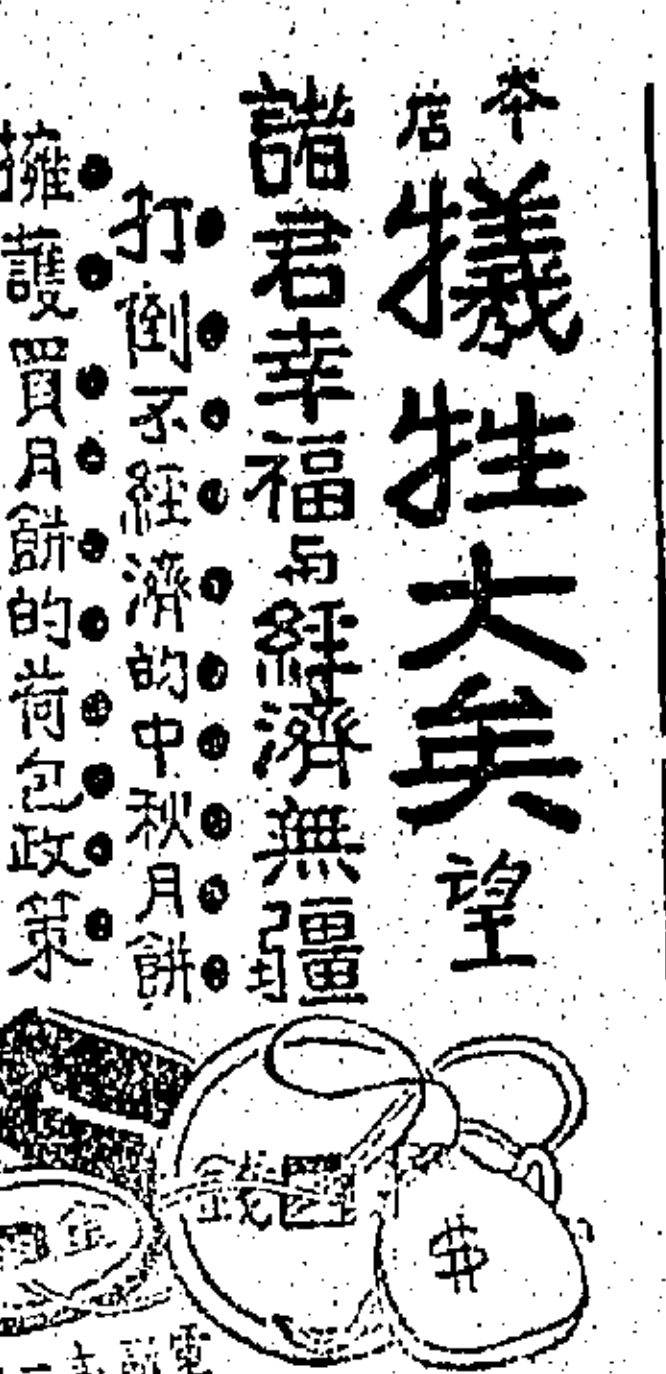 本店犠牲大矣望
諸君幸福与經濟無疆
打倒不經濟的中秋月餅
擁護買月餅的荷包政策
$